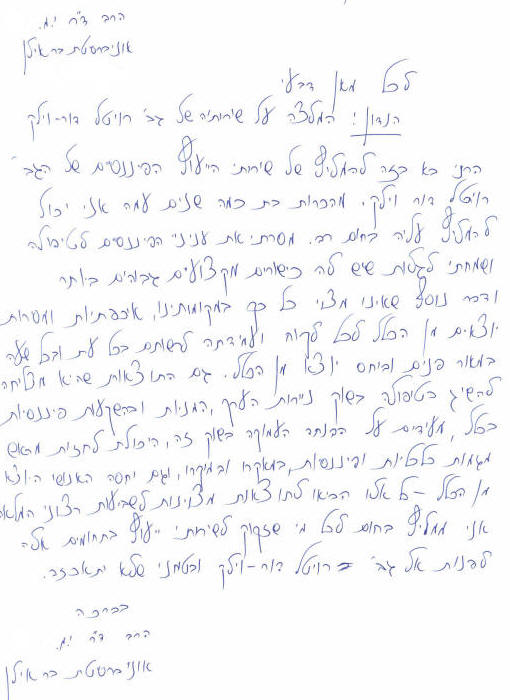 הרב ד"ר י.מ.
אוניברסיטת בר אילן
לכל מאן דבעי
הנדון: המלצה על שירותיה של גב' רויטל דור-וילק
הריני בא בזה להמליץ על שירותי הייעוץ הפיננסים של הגב'
רויטל דור וילק. מהכרות בת כמה שנים עמה אני יכול
להמליץ עליה בחום רב. מסרתי את עניני הפיננסים לטיפולה
ושמחתי לגלות שיש לה כישורים מקצועים גבוהים ביותר
ודבר נוסף שאינו מצוי כל כך במקומותינו, איכפתיות ומסירות
יוצאים מן הכלל לכל לקוח ועמידתה לרשותם בכל עת ובכל שעה
במאור פנים וביחס יוצא מן הכלל. גם התוצאות שהיא מצליחה
להשיג בטיפולה בשוק ניירות הערך, המניות ובהשקעות פיננסיות
בכלל, מעידים על הבנתה העמוקה בשוק זה, היכולת לחזות מראש
מגמות כלכליות ופיננסיות, במאקרו ובמיקרו, וגם יחסה האנושי היוצא
מן הכלל - כל אלו הביאו לתוצאות מצוינות לשביעות רצוני המלאה
אני ממליץ בחום לכל מי שזקוק לשירותי ייעוץ בתחומים אלה
לפנות אל גב' רויטל דור-וילק ובטחוני שלא יתאכזב.
בברכה
הרב ד"ר י.מ.
אוניברסיטת בר אילן